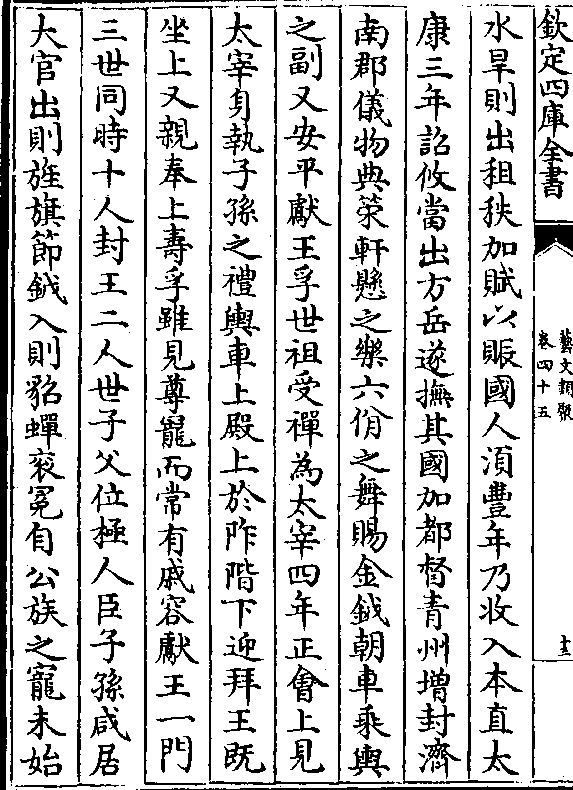 欽定四庫全書
藝文類聚
卷四十五
十三
水旱則出租秩加賦以賑國人湏豐年乃收入本直太
康三年詔攸當出方岳遂撫其國加都督青州增封濟
南郡儀物典䇿軒懸之樂六佾之舞賜金鉞朝車乘輿
之副又安平獻王孚世祖受禪為太宰四年正會上見
太宰身執子孫之禮輿車上殿上於阼階下迎拜王既
坐上又親奉上壽孚雖見尊寵而常有戚容獻王一門
三世同時十人封王二人世子父位極人臣子孫咸居
大官出則旌旗節鉞入則貂蟬衮冕自公族之寵未始